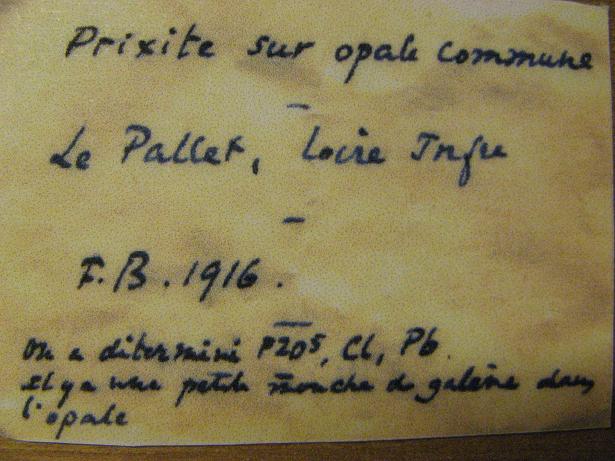 Prixite sur opale commune
–
Le Pallet, Loire Infre
–
F.B. 1916.
–
On a déterminé P2O5, Cl, Pb.
Il y a une petite mouche de galène dans
l'opale